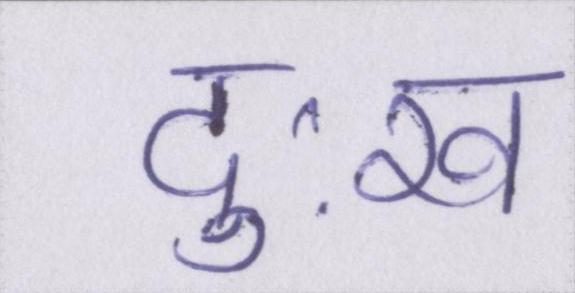 दुःख